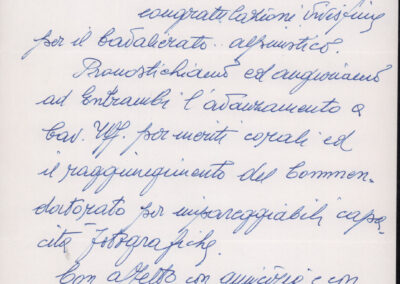 congratulazioni vivissime
per il cavalierato alpinistico.
Pronostichiamo ed auguriamo
ad Entrambi l'avanzamento a
Cav. Uff. per meriti corali ed
il raggiungimento del Commen-
datorato per impareggiabili capa-
cità fotografiche.
Con affetto con amicizia e con